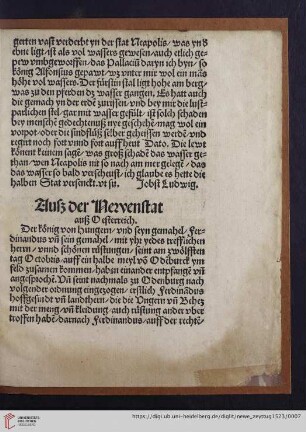 gerten vast verderbt yn der stat Neapolis, was yn d
ebni ligt ist als vol wassers gewesen, auch etlich ge-
pew vmbgeworffen, das Pallaciū darÿn ich byn, so
könig Alfonsius gepawt, wz vnter mir wol ein mās
höhe vol wassers. Der fürstin stal ligt hohe am berg,
was zu den pferden dz wasser gangen. Es hatt auch
die gemach yn der erde zurissen, vnd bey mir die lust-
parlichen stel, gar mit wasser gefült, ist solch schaden
bey mensche gedechtenuß nye geschehē, mag wol ein
vorpot, oder die sindtfluß selber geheissen werdē, vnd
regnt noch fott vnnd fott auff heut Dato. Die lewt
könent keinem sagē, was groß schadē das wasser ge-
than, wen Neapolis nit so nach am mer gelegē, das
das wasser so bald verscheust, ich glaube es hette die
halben Stat versenckt. vt su. Jobst Ludwig.
Auß der Newenstat
auß Osterreich.
Der könig von hungern, vnd seyn gemahel, Fer-
dinandus vñ sein gemahel, mit yhr yedes trefflichen
herrn, vnnd schönen rüstungen, seint am zwölfften
tag Octobris, auff ein halbe meyl vō Odeburck ym
feld zusamen kommen, haben einander entpfangē vñ
angesprochē. Vñ seint nachmals zu Odenburg nach
volgender ordnung eingezogen, erstlich Ferdinādus
hoffgesindt vñ landtherrn, die die Vngern vñ Behez
mit der meng, vñ kleidung, auch rüstung ander vber
troffen habē, darnach Ferdinandus, auff der rechtē
https://digi.ub.uni-heidelberg.de/diglit/newe_zeyttug1523/0007
UNIVERSITÄTS-
BIBLIOTHEK
HEIDELBERG